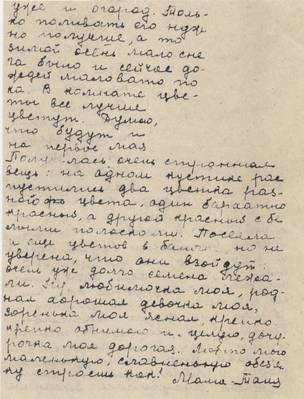 уже и огород. Толь-
ко поливать его нуж-
но получше, а то
зимой очень мало сне
га было и сейчас до-
ждей маловато по
ка. В комнате цве-
ты все лучше
цветут. Думаю,
что будут и
на первое мая
Получилась очень странная
вещь: на одном кустике рас
пустились два цветка раз-
ного цвета, один бархатно
красный, а другой красный с бе
лыми полосками. Посеяла
и еще цветов в банки, но не
уверена, что они взойдут:
очень уже долго семена лежа-
ли. Ну, любимочка моя, род-
ная хорошая девочка моя,
зоренька моя ясная, крепко
крепко обнимаю и целую, дочу-
рочка моя дорогая. Люблю мою
маленькую, славненькую обезья
ну страсть как! Мама Таня